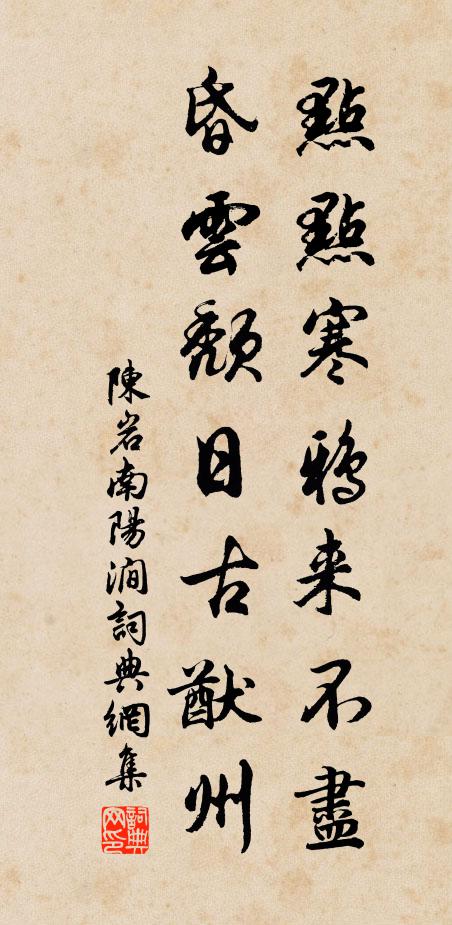 點點寒鴉来不盡
昏雲頹日古猷州
陳岩南陽澗詞典網集
詞典網印